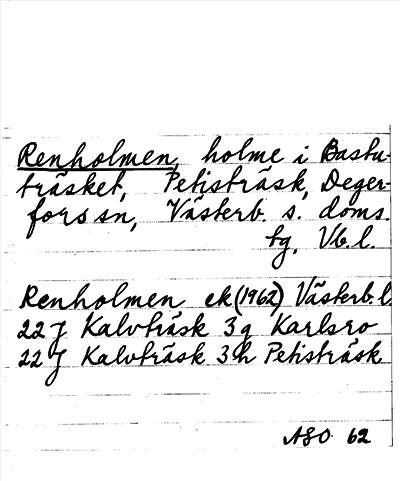 Renholmen, holme i Bastu-
träsket, Petisträsk, Deger-
fors sn, Västerb. s. doms.
tg, Vb. l.
Renholmen ek (1962) Västerb. l
22 J Kalvträsk 3 g Karlsro
22 J Kalvträsk 3 h Petisträsk
ASO 62